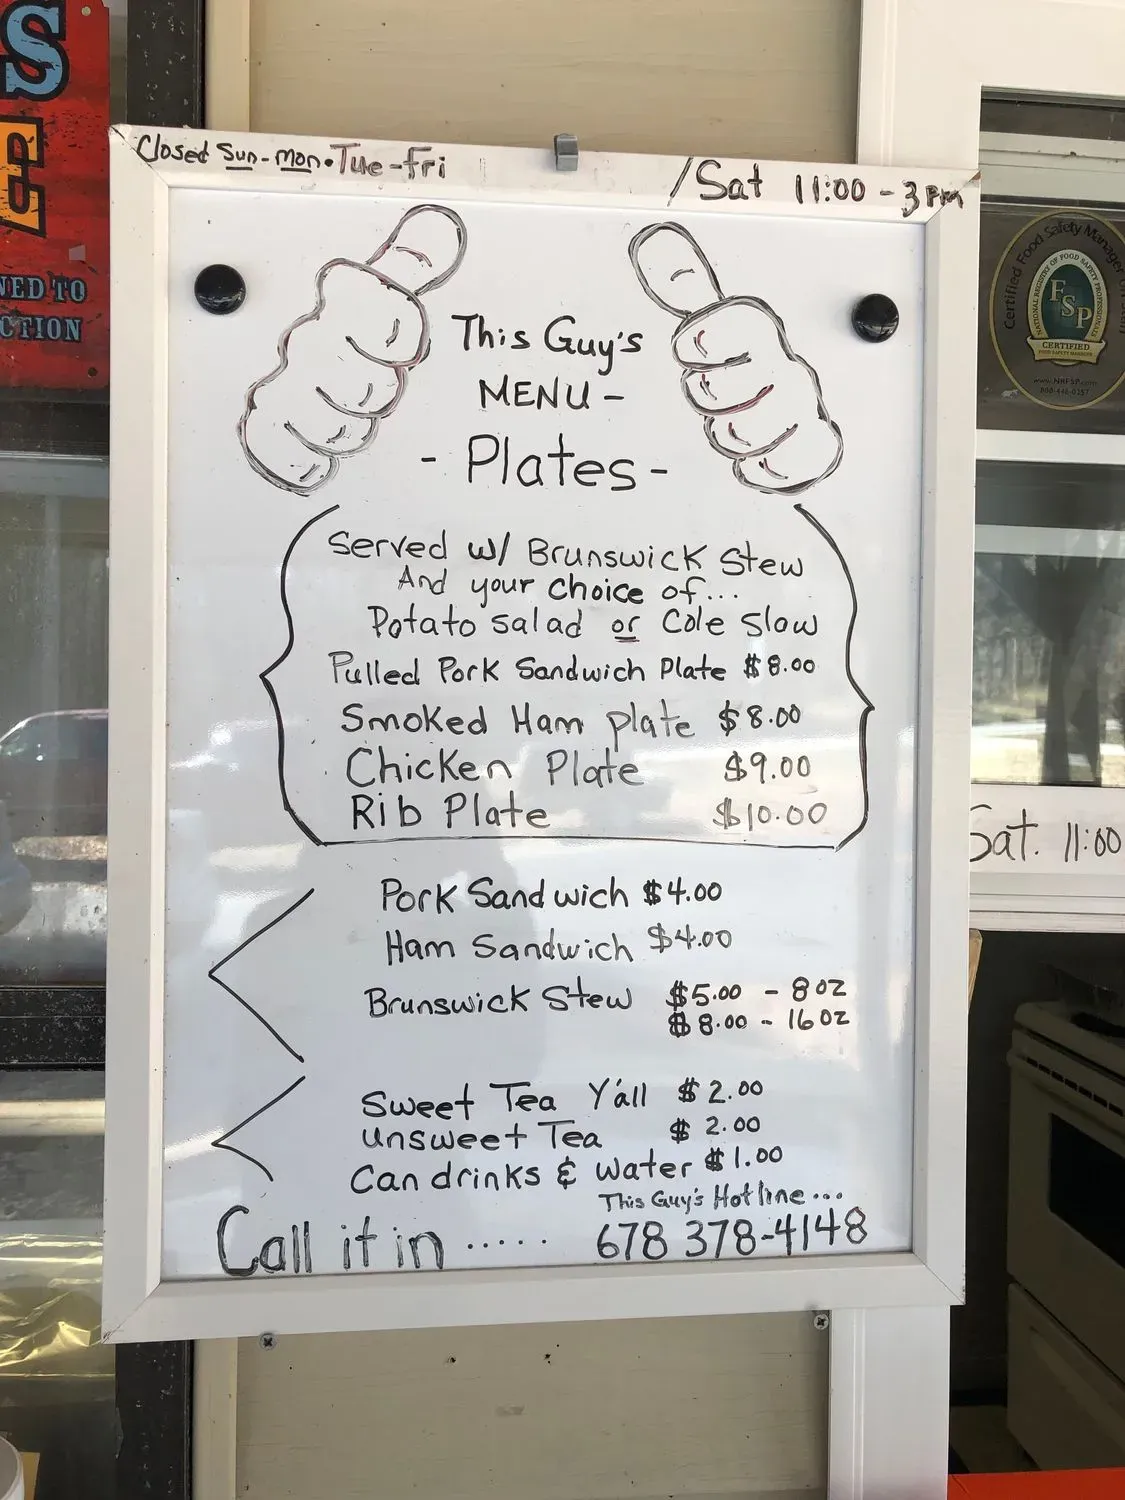 S
NED TO
CTION
Closed Sun-Mon • Tue-Fri /Sat 11:00 - 3pm
This Guy's
MENU -
- Plates -
Served w/ Brunswick Stew
And your choice of...
Potato salad or Cole Slaw
Pulled Pork Sandwich Plate $8.00
Smoked Ham plate $8.00
Chicken Plate $9.00
Rib Plate $10.00
Pork Sandwich $4.00
Ham Sandwich $4.00
Brunswick Stew $5.00 - 8oz
$8.00 - 16oz
Sweet Tea Y'all $2.00
Unsweet Tea $2.00
Can drinks & Water $1.00
This Guy's Hotline...
Call it in ..... 678 378-4148
Certified Food Safety Manager
NATIONAL REGISTRY OF FOOD SAFETY PROFESSIONALS
FSP
CERTIFIED
FOOD SAFETY MANAGER
www.NRFSP.com
800-446-0257
Sat. 11:00